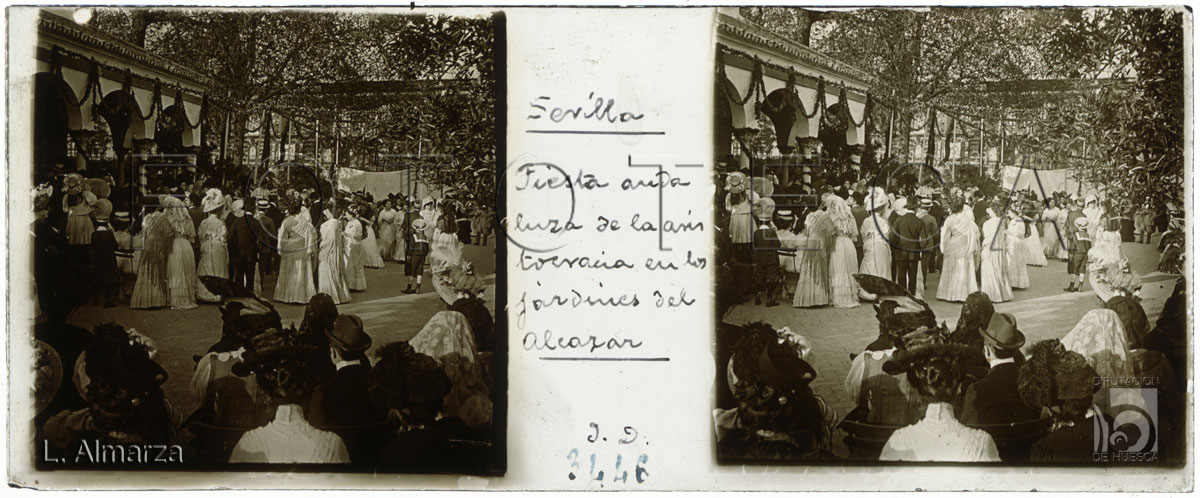 Sevilla
Fiesta anda
luza de la aris
tocracia en los
jardines del
Alcazar
J. D.
3446
FOTOTECA
L. Almarza
DIPUTACIÓN
DE HUESCA